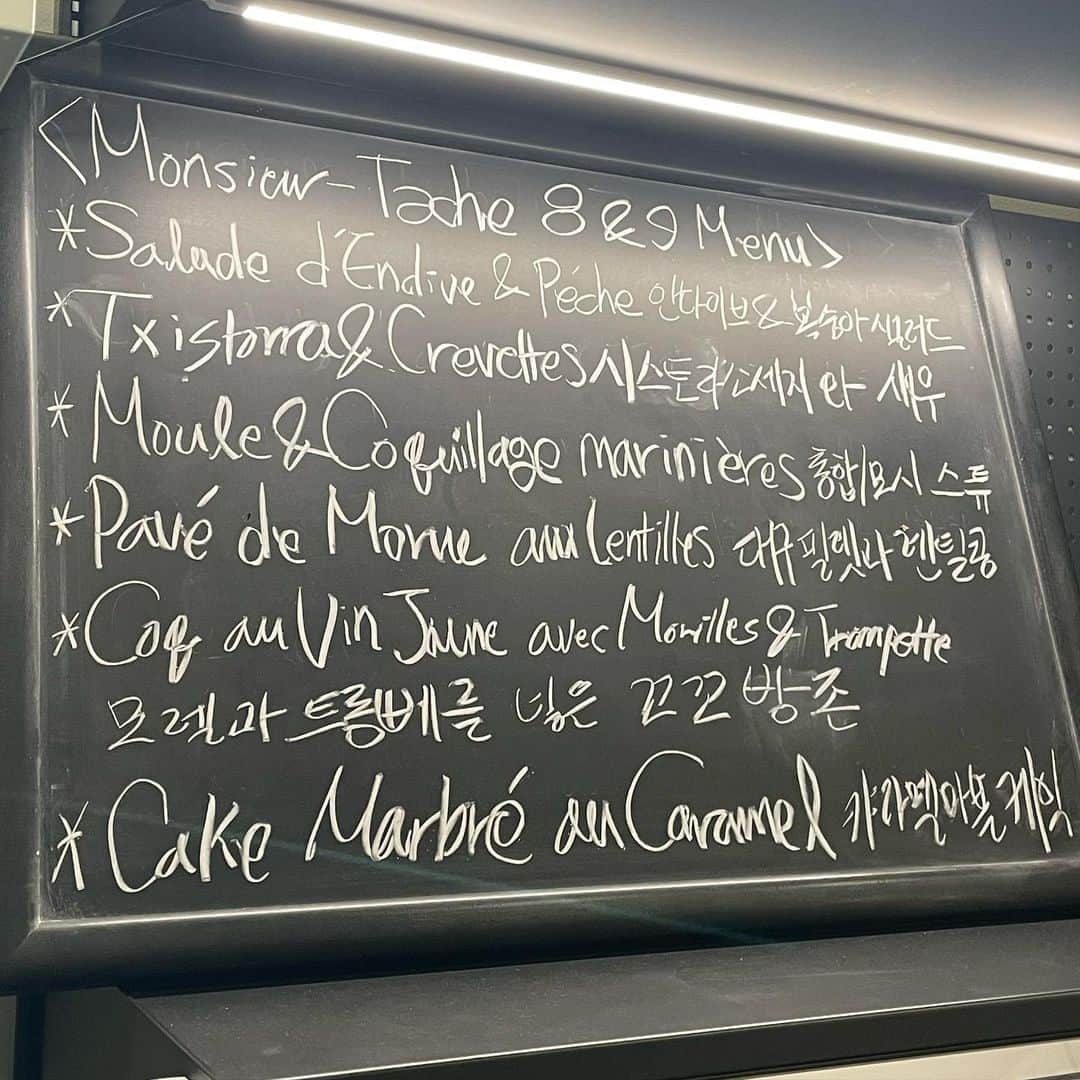 <Monsieur-Tache 8&9 Menu>
*Salade d'Endive & Péche 엔다이브&복숭아 샐러드
*Txistorra&Crevettes 시스토라소세지 와 새우
*Moule&Coquillage marinières 홍합/모시 스튜
*Pavé de Morue aux Lentilles 대구 필렛과 렌틸콩
*Coq au Vin Jaune avec Morilles & Trompette
모렐과 트롱베를 넣은 꼬꼬방존
*Cake Marbré au Caramel 캬라멜마블 케익